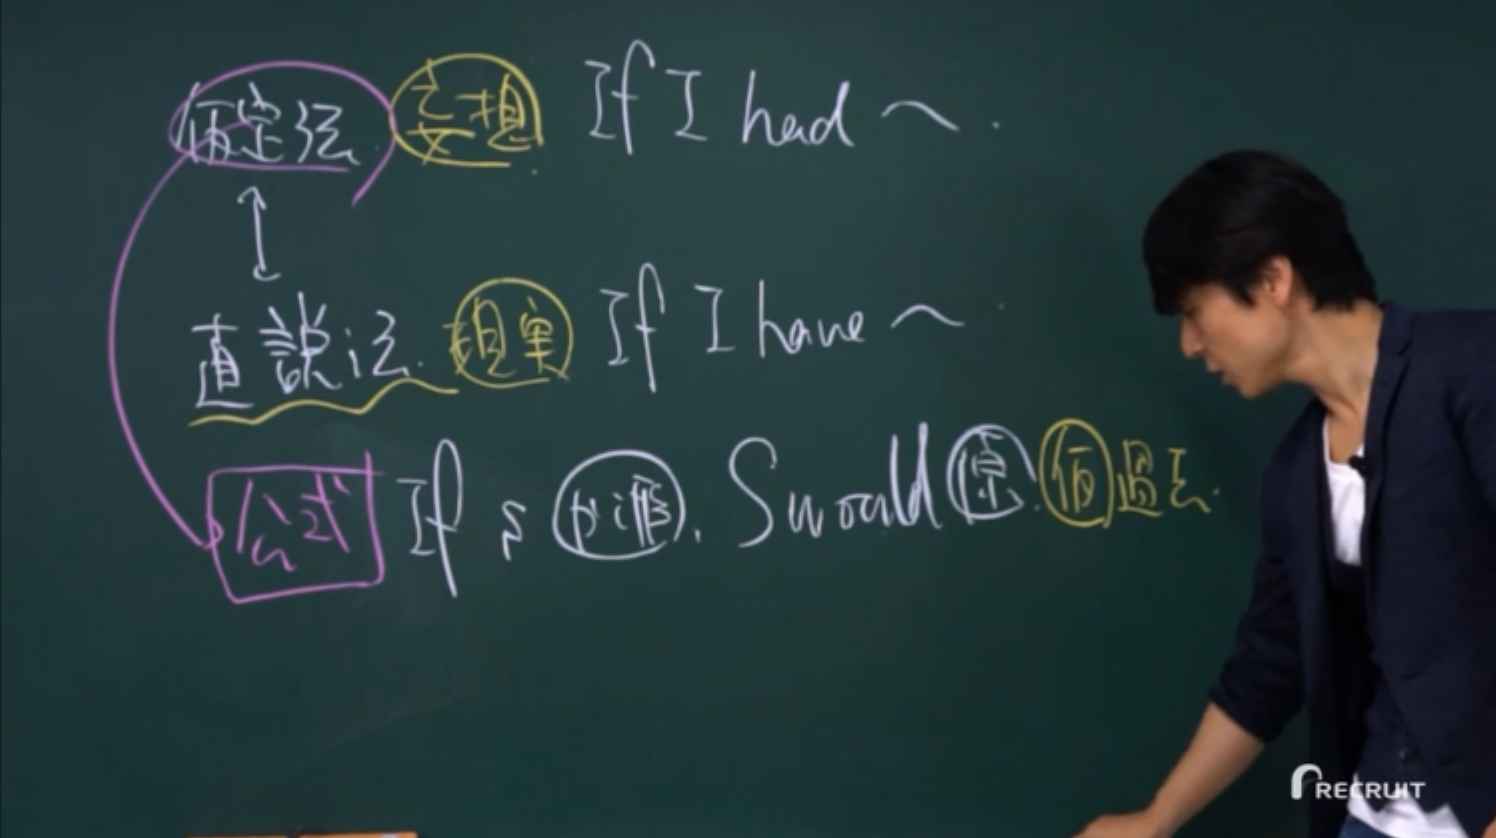 仮定法 妄想 If I had ～.
直説法. 現実 If I have ～
公式 If s 過過形, S would 原. 仮過去.
RECRUIT